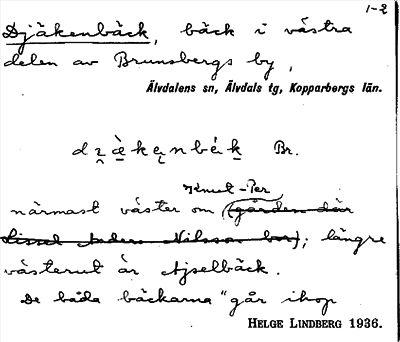 1-2
Djäkenbäck, bäck i västra
delen av Brunnbergs by,
Älvdalens sn, Älvdals tg, Kopparbergs län.
Br.
Knut-Per
närmast väster om (gården där
Lissel Anders Nilsson bor); längre
västerut är Ajselbäck.
De båda bäckarna "går ihop
HELGE LINDBERG 1936.